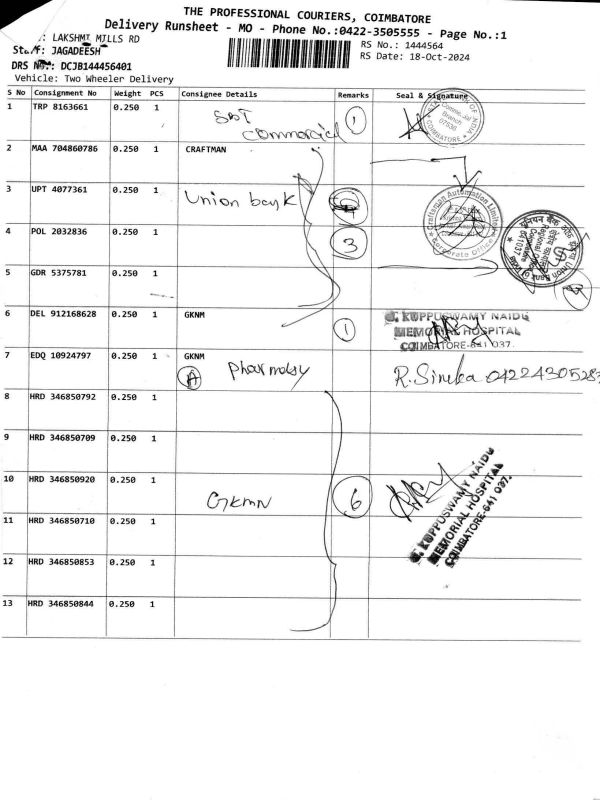 THE PROFESSIONAL COURIERS, COIMBATORE
Delivery Runsheet - MO - Phone No.:0422-3505555 - Page No.:1
: LAKSHMI MILLS RD
RS No.: 1444564
Staff: JAGADEESH
RS Date: 18-Oct-2024
DRS No.: DCJB144456401
Vehicle: Two Wheeler Delivery
S No Consignment No Weight PCS Consignee Details Remarks Seal & Signature
1 TRP 8163661 0.250 1 commercial 1
COIMBATORE
2 MAA 704860786 0.250 1 CRAFTMAN
3 UPT 4077361 0.250 1 Union bank
Craftsman Automation Limited
Corporate Office
4 POL 2032836 0.250 1 3
यूनियन बैंक Union Bank
5 GDR 5375781 0.250 1
6 DEL 912168628 0.250 1 GKNM 1
G. KUPPUSWAMY NAIDU
MEMORIAL HOSPITAL
COIMBATORE-641 037.
7 EDQ 10924797 0.250 1 GKNM
A
8 HRD 346850792 0.250 1
9 HRD 346850709 0.250 1
10 HRD 346850920 0.250 1 GKMN 6
G. KUPPUSWAMY NAIDU
MEMORIAL HOSPITAL
COIMBATORE-641 037.
11 HRD 346850710 0.250 1
12 HRD 346850853 0.250 1
13 HRD 346850844 0.250 1